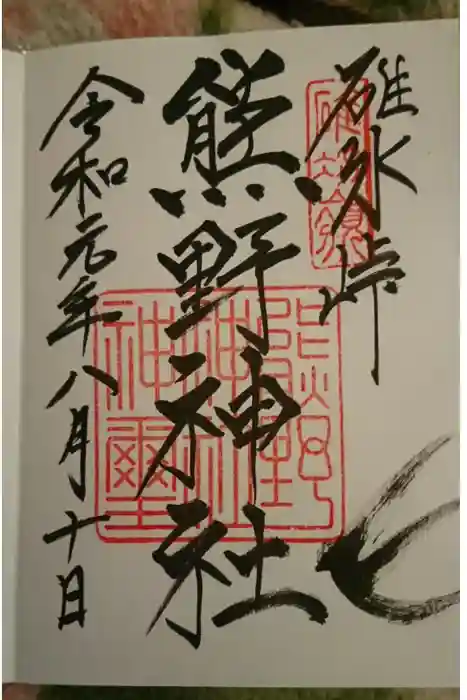 碓氷峠
熊野神社
令和元年八月十日
碓氷嶺
熊野
神社
神璽